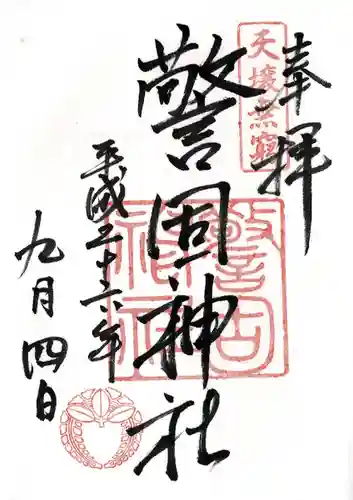 奉拝
天壌無窮
警固神社
平成二十六年
九月四日